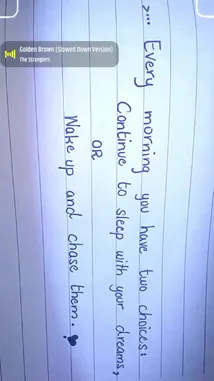 Golden Brown (Slowed Down Version)
The Stranglers
>... Every morning you have two choices:
Continue to sleep with your dreams,
OR
Wake up and chase them.